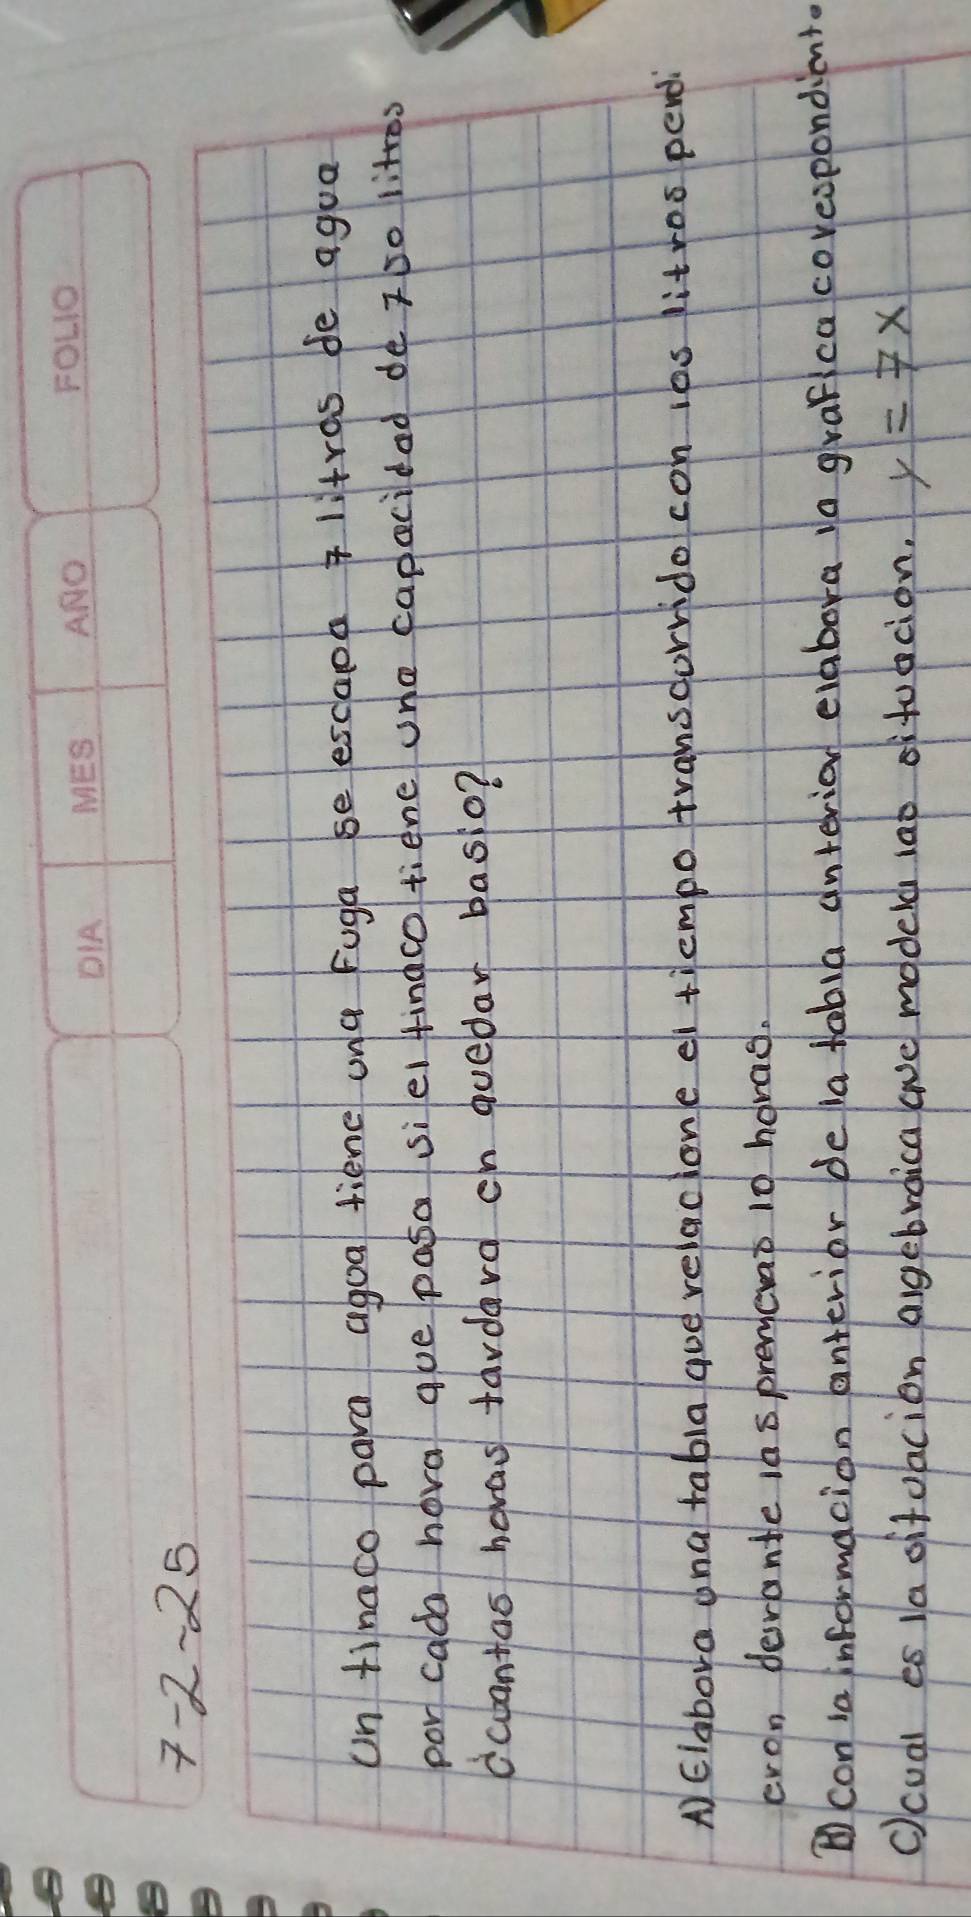 DIA MES AÑO FOLIO
7-2-25
Un tinaco para agua tiene una Fuga se escapa 7 litros de agua
por cada hora que pasa si el tinaco tiene una capacidad de 750 litros
¿cuantas horas tardara en quedar basio?
A) Elabora una tabla que relacione el tiempo transcurrido con los litros perdi
eron durante las premeras 10 horas.
B) con la informacion anterior de la tabla anterior elabora la grafica corespondiente
C) cual es la situacion algebraica que modela las situacion. y = 7x